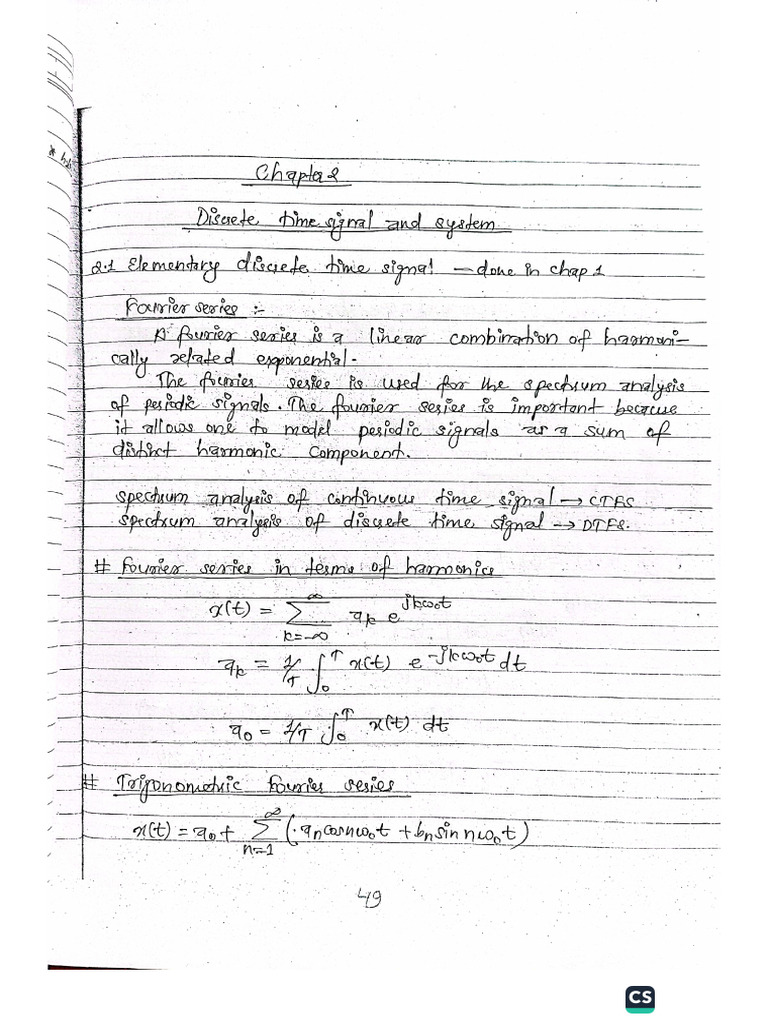 Chapter 2
Discrete time signal and system
2.1 Elementary discrete time signal — done in chap 1
Fourier series :-
A fourier series is a linear combination of harmoni-
cally related exponential.
The fourier series is used for the spectrum analysis
of periodic signals. The fourier series is important because
it allows one to model periodic signals as a sum of
distinct harmonic component.
spectrum analysis of continuous time signal → CTFS
spectrum analysis of discrete time signal → DTFS.
# Fourier series in terms of harmonics
x(t) = ∑_{k=-∞}^{∞} a_k e^{jkω₀t}
a_k = 1/T ∫₀^T x(t) e^{-jkω₀t} dt
a₀ = 1/T ∫₀^T x(t) dt
# Trigonometric Fourier series
x(t) = a₀ + ∑_{n=1}^{∞} (a_n cos nω₀t + b_n sin nω₀t)
49
CS